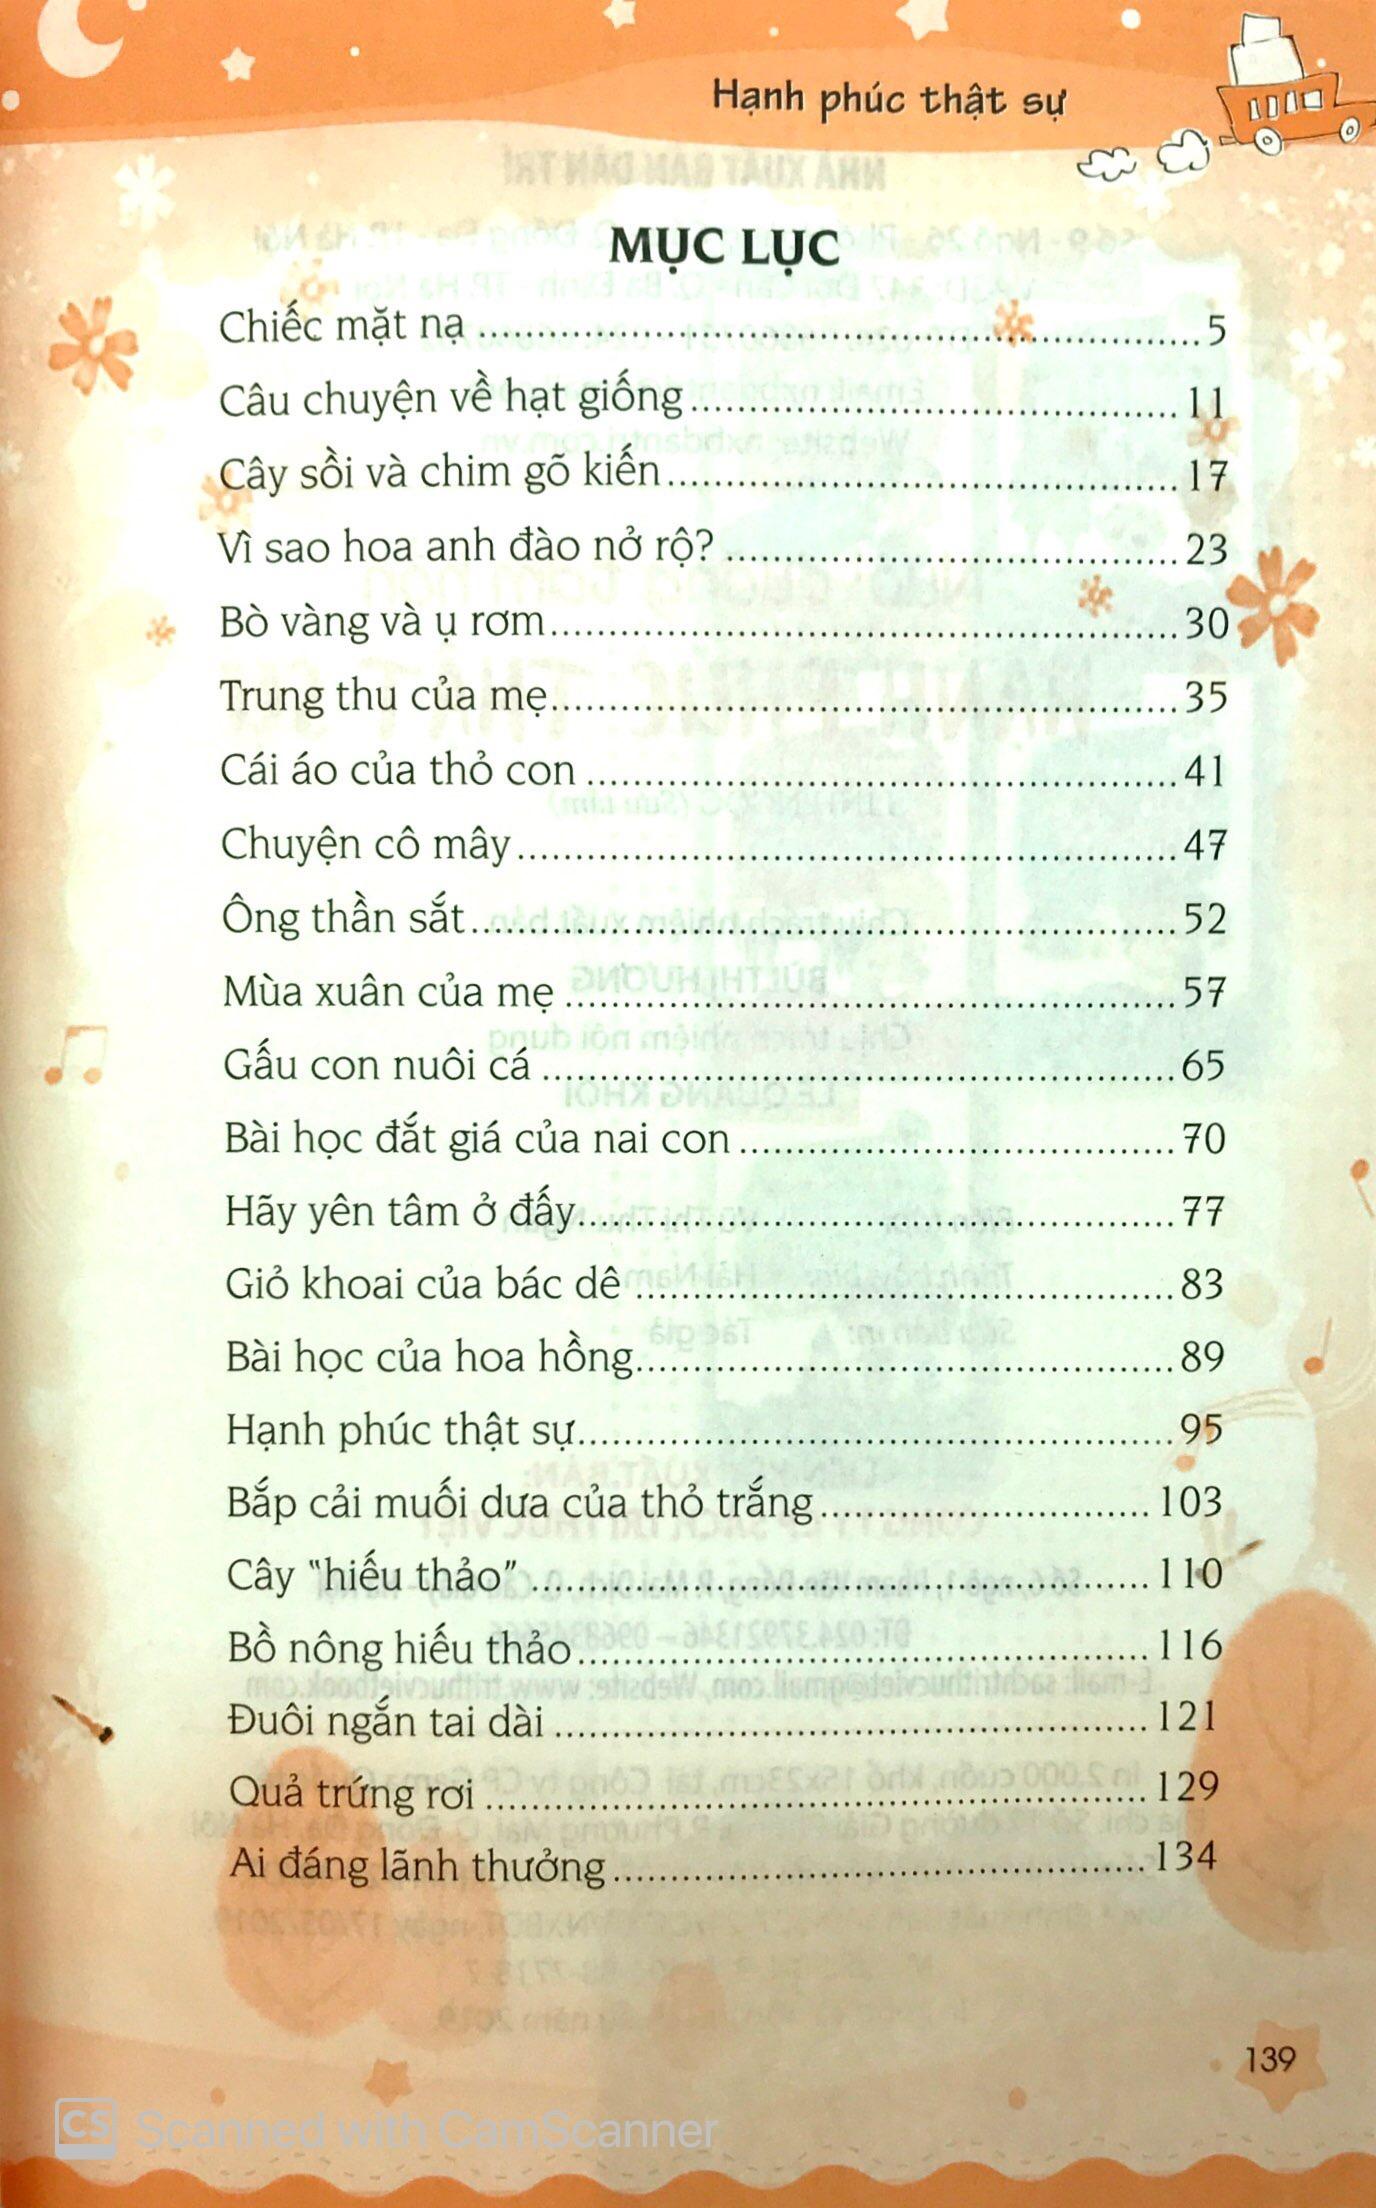 Hạnh phúc thật sự
MỤC LỤC
Chiếc mặt nạ ........................................ 5
Câu chuyện về hạt giống ........................................ 11
Cây sồi và chim gõ kiến ........................................ 17
Vì sao hoa anh đào nở rộ? ........................................ 23
Bò vàng và ụ rơm ........................................ 30
Trung thu của mẹ ........................................ 35
Cái áo của thỏ con ........................................ 41
Chuyện cô mây ........................................ 47
Ông thần sắt ........................................ 52
Mùa xuân của mẹ ........................................ 57
Gấu con nuôi cá ........................................ 65
Bài học đắt giá của nai con ........................................ 70
Hãy yên tâm ở đấy ........................................ 77
Giỏ khoai của bác dê ........................................ 83
Bài học của hoa hồng ........................................ 89
Hạnh phúc thật sự ........................................ 95
Bắp cải muối dưa của thỏ trắng ........................................ 103
Cây "hiếu thảo" ........................................ 110
Bồ nông hiếu thảo ........................................ 116
Đuôi ngắn tai dài ........................................ 121
Quả trứng rơi ........................................ 129
Ai đáng lãnh thưởng ........................................ 134
139
CS Scanned with CamScanner